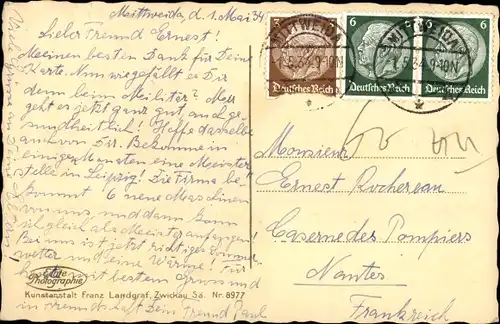 Mittweida, d. 1. Mai 34
Lieber Freund Ernest!
Meinen besten Dank für Deine
Karte. Nun wie gefällt es Dir
denn beim Militär? Mir
geht es jetzt ganz gut, auch ge-
sundheitlich! Hoffe dasselbe
auch von Dir. Bekomme in
einigen Monaten eine Meister
stelle in Leipzig! Die Firma be-
kommt 6 neue Maschinen
und dann kann
ich gleich als Meister anfangen!
Bei uns ist jetzt richtiges Sommer
wetter und eine Wärme! Für
heute mit besten Gruss und
in Freundschaft Dein Freund Paul
Echte
Photographie
Kunstanstalt Franz Landgraf, Zwickau Sa. Nr. 8977
3
6
6
Deutsches Reich
Deutsches Reich
Deutsches Reich
MITTWEIDA
MITTWEIDA
1.5.34.9-10N
Monsieur
Ernest Rochereau
Caserne des Pompiers
Nantes
Frankreich